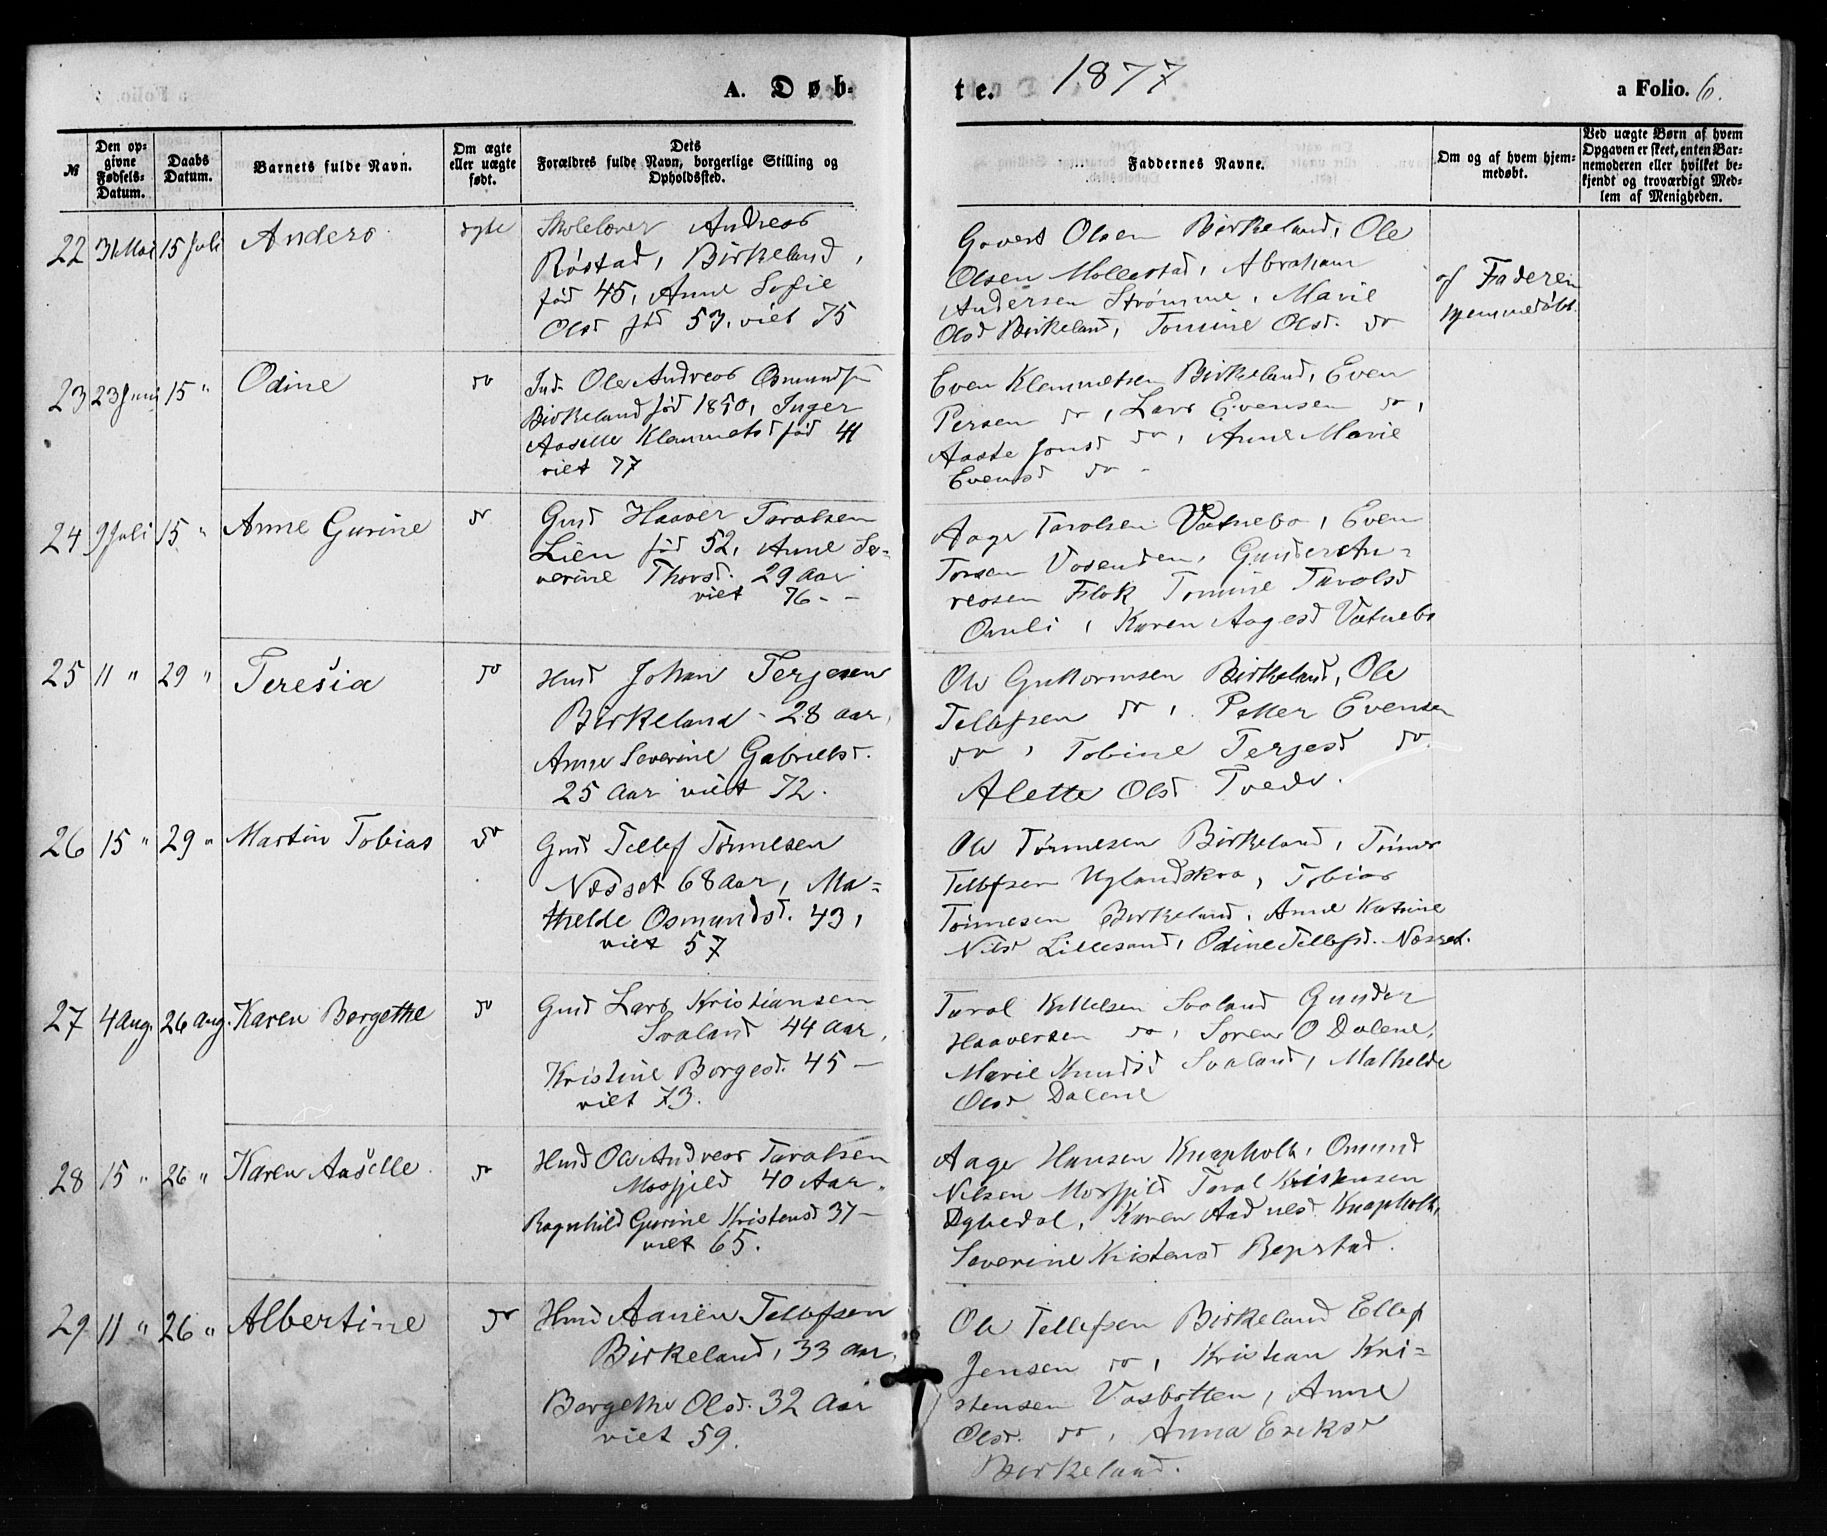 A. Døb-
te. 1877
a Folio. 6.
№
Den op-
givne
Fødsels-
Datum.
Daabs
Datum.
Barnets fulde Navn.
Om ægte
eller uægte
født.
Dets
Forældres fulde Navn, borgerlige Stilling og
Opholdssted.
Faddernes Navne.
Om og af hvem hjem-
medøbt.
Ved uægte Børn af hvem
Opgaven er skeet, enten Bar-
nemoderen eller hvilket be-
kjendt og troværdigt Med-
lem af Menigheden.
22 31 Mai 15 Juli Anders ægte
Skolelærer Andreas
Røstad, Birkeland,
fød 45, Anne Sofie
Olsd fød 53, viet 75
Govert Olsen Birkeland, Ole
Olsen Mollestad, Abraham
Andersen Strømme, Marie
Olsd Birkeland, Tomine Olsd. do
af Faderen
hjemmedøbt.
23 23 Juni 15 " Odine do
Ind. Ole Andreas Osmundsen
Birkeland fød 1850, Inger
Aaselle Klemmetsd fød 41
viet 77
Even Klemmetsen Birkeland, Even
Persen do, Lars Evensen do,
Aaste Jonsd do, Anne Marie
Evensd do -
24 9 Juli 15 " Anne Gurine do
Gmd Haaver Taralsen
Lien fød 52, Anne Se-
verine Thorsd. 29 Aar
viet 76 - -
Aage Taralsen Vatnebo, Even
Torsen Vasenden, Gunder An-
reasen Flak Tomine Taralsd
Omli, Karen Aagesd Vatnebo
25 11 " 29 " Teresia do
Hmd Johan Terjesen
Birkeland - 28 aar,
Anne Severine Gabrielsd.
25 Aar viet 72.
Ole Guttormsen Birkeland, Ole
Tellefsen do, Petter Evensen
do, Tobine Terjesd do.
Alette Olsd Tvede.
26 15 " 29 " Martin Tobias do
Gmd Tellef Tønnesen
Næsset 68 Aar, Ma-
thelde Osmundsd. 43,
viet 57
Ole Tønnesen Birkeland, Tønnes
Tellefsen Uglandskra, Tobias
Tønnesen Birkeland, Anne Katrine
Nilsd Lillesand, Odine Tellefsd. Næsset.
27 4 Aug. 26 Aug. Karen Bergethe do
Gmd Lars Kristiansen
Svaland 44 Aar,
Kristine Borgesd. 45 -
viet 73.
Taral Kittelsen Svaland Gunder
Haaversen do, Søren O Dalene,
Marie Knudsd Svaland, Mathelde
Olsd Dalene
28 15 " 26 " Karen Aaselle do
Hmd Ole Andreas Taralsen
Mosfjeld 40 Aar,
Ragnhild Gurine Kristensd 37 -
viet 65.
Aage Hansen Knapholt, Omund
Nilsen Mosfjeld Taral Kristensen
Dybedal, Karen Aadnesd Knapholt,
Severine Kristensd Repstad.
29 11 " 26 " Albertine do
Hmd Aanen Tellefsen
Birkeland, 33 aar,
Bergethe Olsd. 32 Aar
viet 59.
Ole Tellefsen Birkeland Ellef
Jensen do, Kristian Kri-
stensen Vasbotten, Anne
Olsd. do, Anna Eriksd
Birkeland.